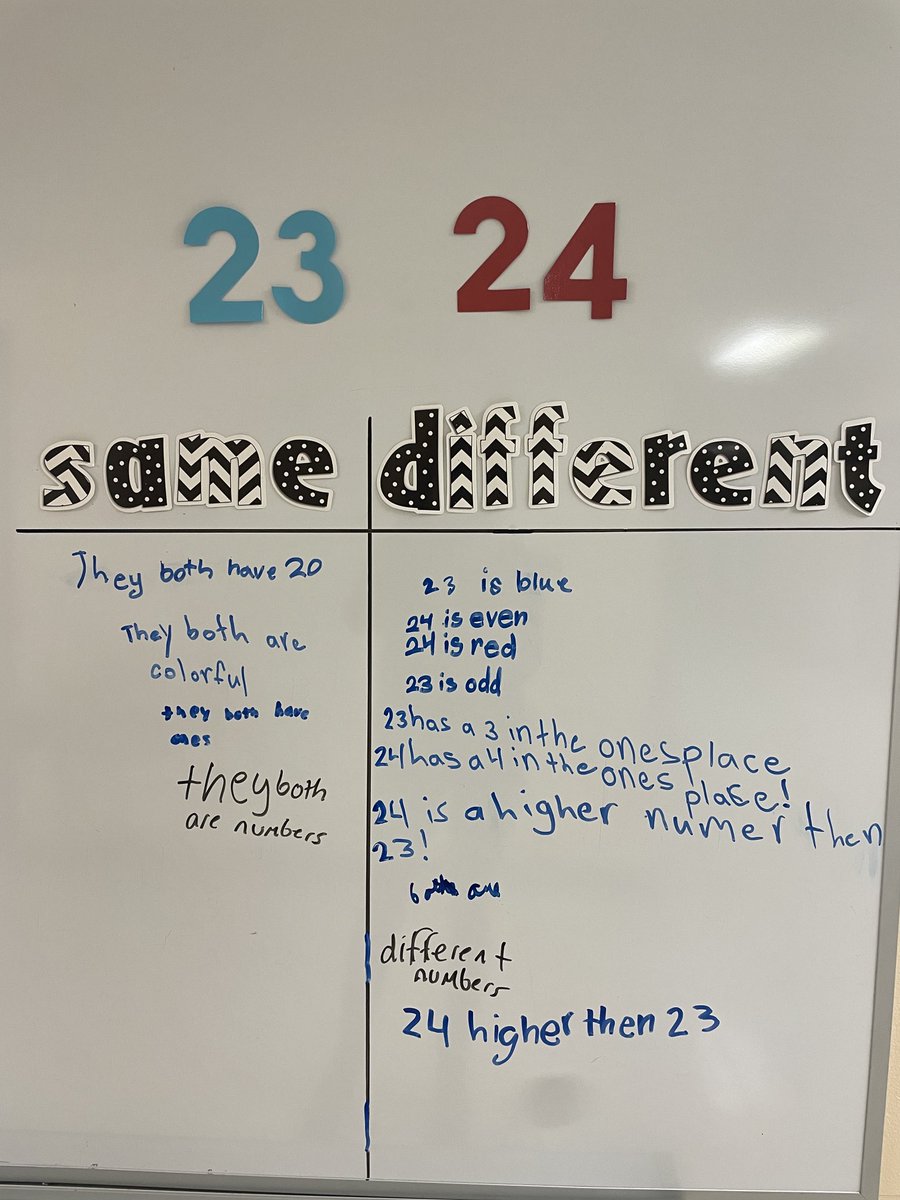 23 24
same different
They both have 20
They both are
colorful
they both have
ones
they both
are numbers
23 is blue
24 is even
24 is red
23 is odd
23 has a 3 in the ones place
24 has a 4 in the ones place!
24 is a higher numer then
23!
are
different
numbers
24 higher then 23